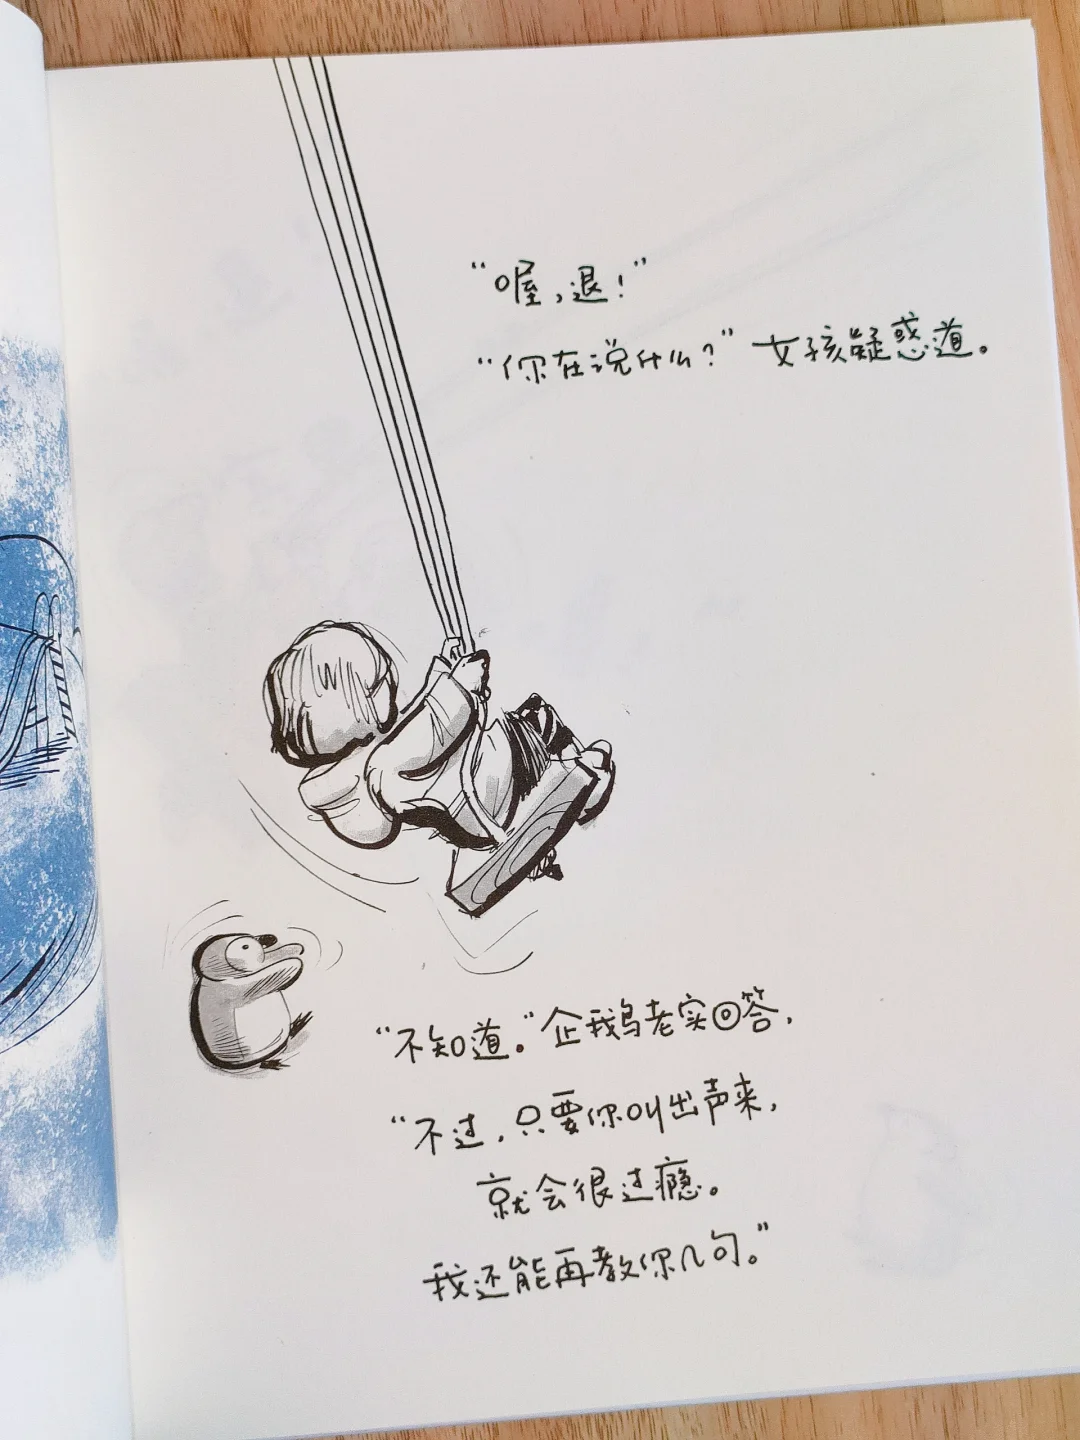 “喔，退！”
“你在说什么？”女孩疑惑道。
“不知道。”企鹅老实回答，
“不过，只要你叫出声来，
就会很过瘾。
我还能再教你几句。”